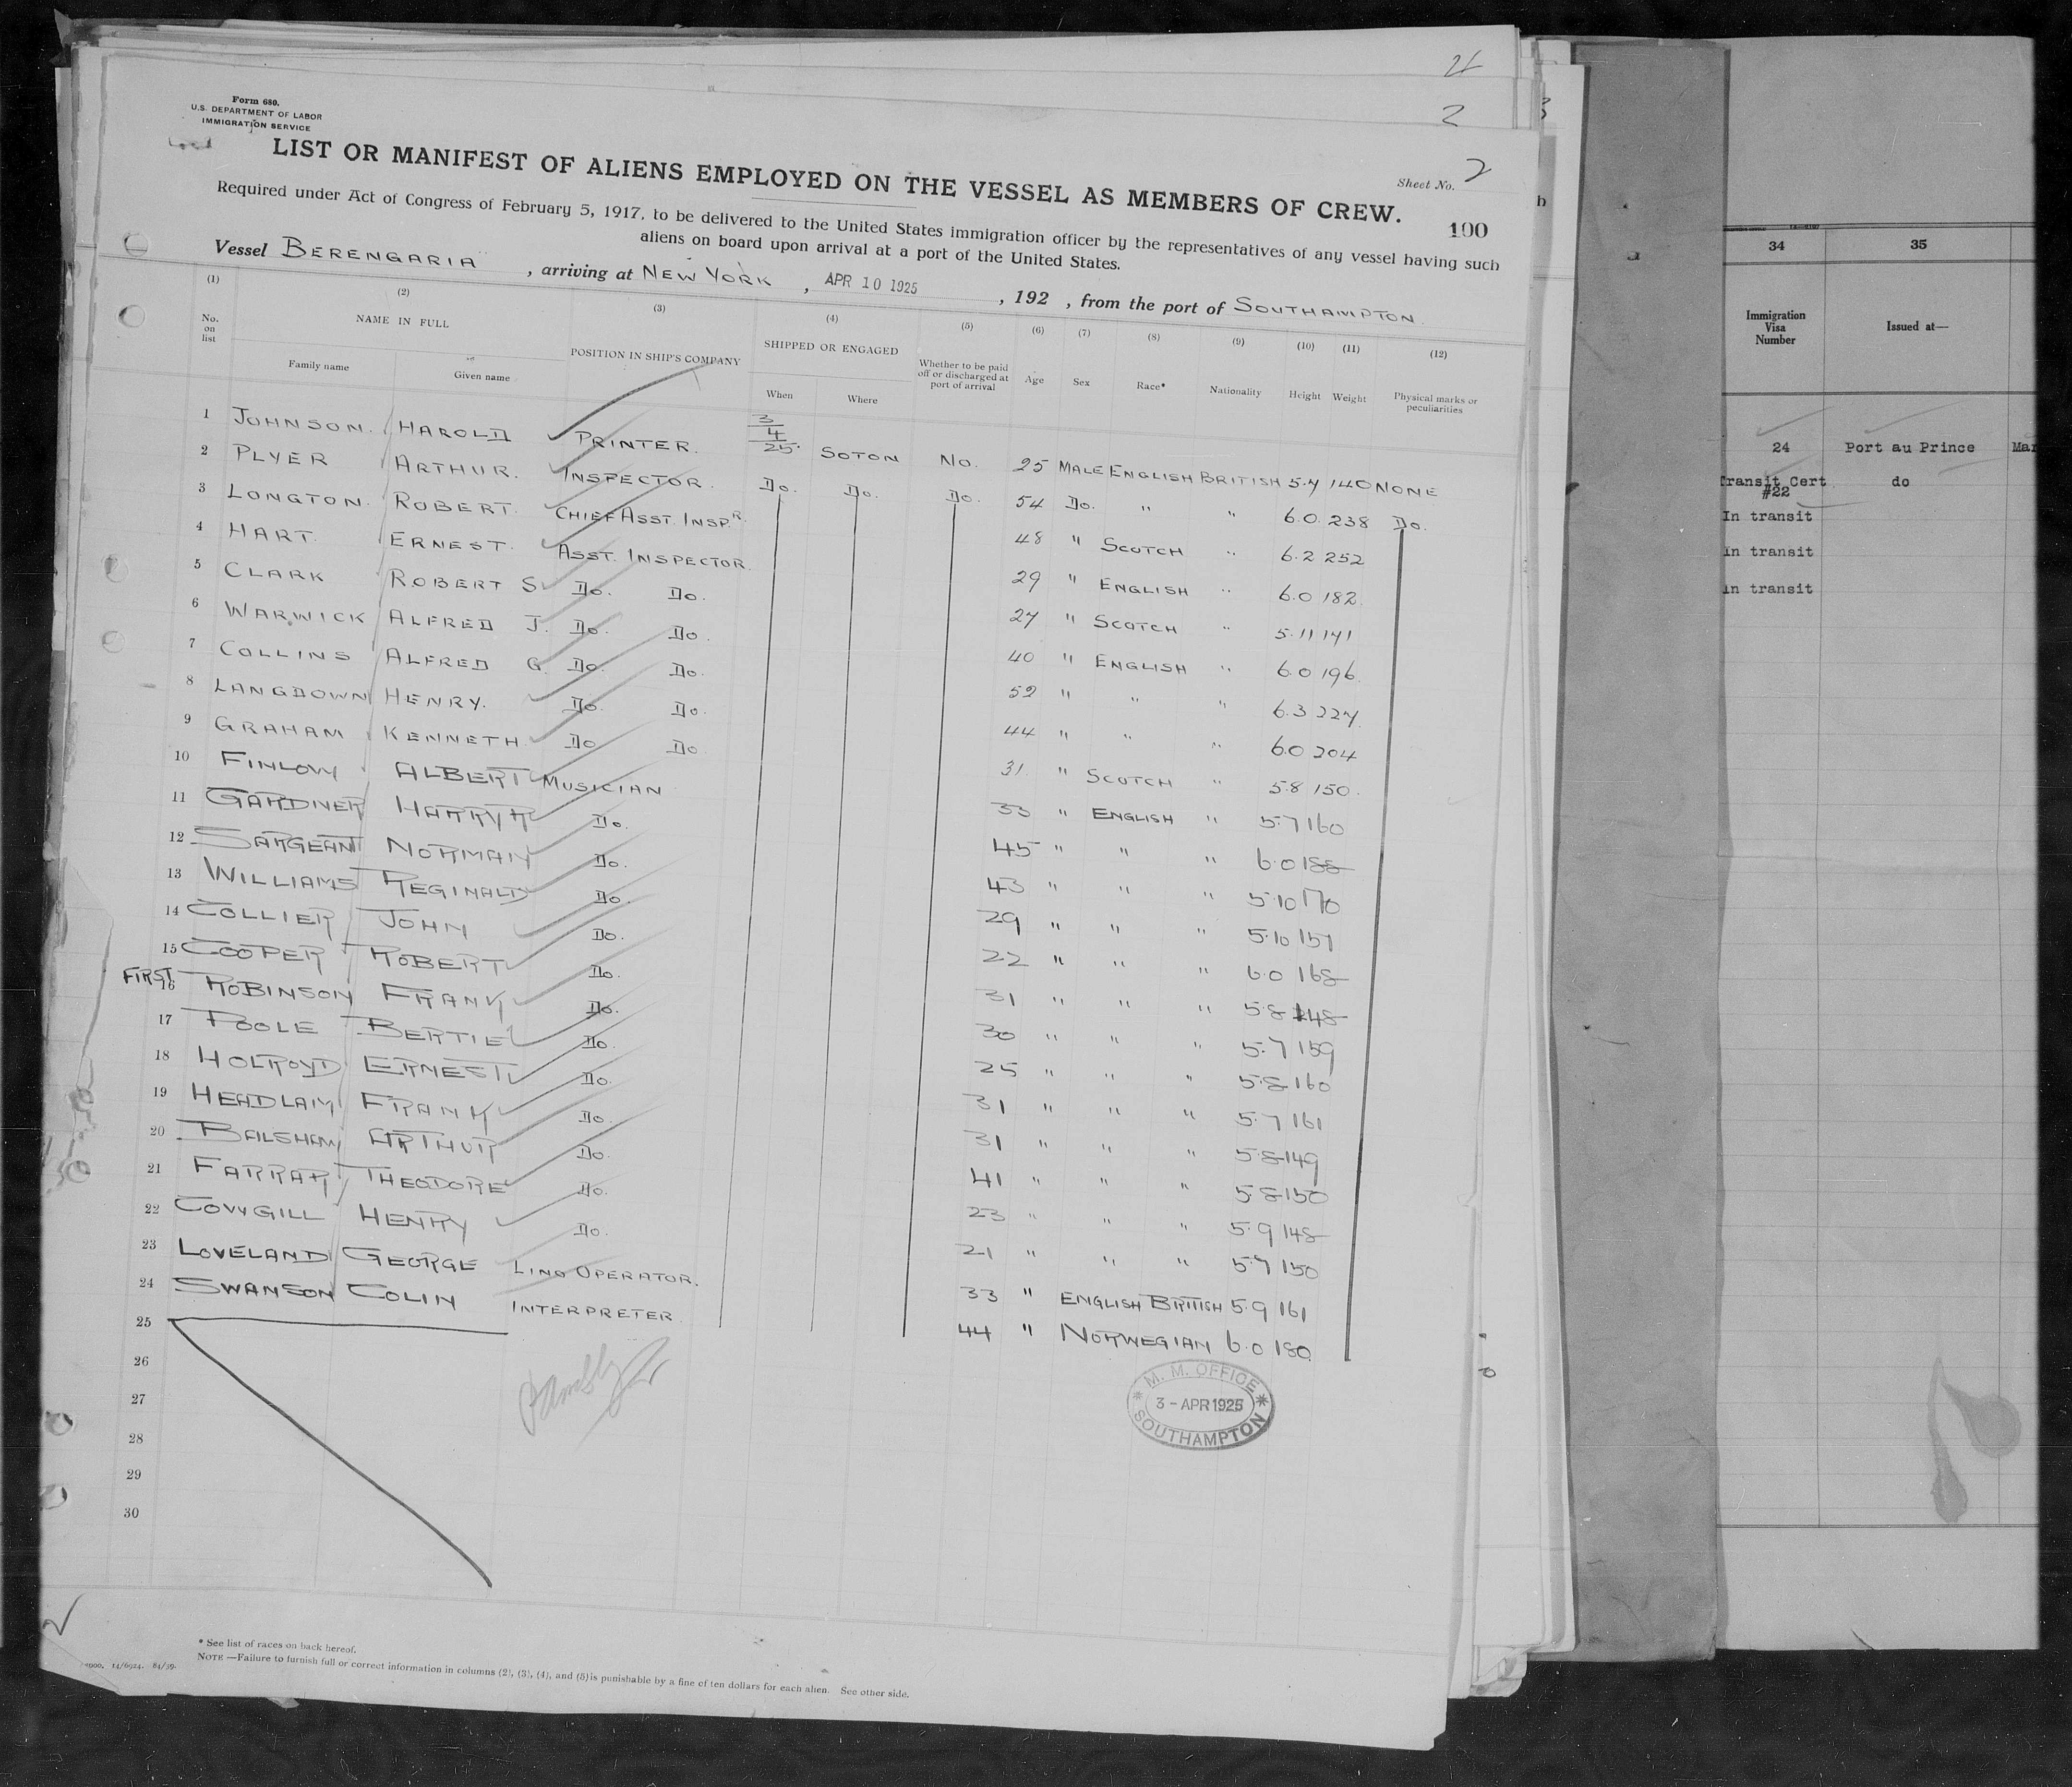 2
Form 680.
U.S. DEPARTMENT OF LABOR
IMMIGRATION SERVICE
LIST OR MANIFEST OF ALIENS EMPLOYED ON THE VESSEL AS MEMBERS OF CREW.
Sheet No. 2
100
Required under Act of Congress of February 5, 1917, to be delivered to the United States immigration officer by the representatives of any vessel having such
aliens on board upon arrival at a port of the United States.
Vessel BERENGARIA, arriving at NEW YORK, APR 10 1925, 192 , from the port of SOUTHAMPTON
(1) (2) (3) (4) (5) (6) (7) (8) (9) (10) (11) (12)
No. on list
NAME IN FULL
Family name Given name
POSITION IN SHIP'S COMPANY
SHIPPED OR ENGAGED
When Where
Whether to be paid off or discharged at port of arrival
Age Sex Race* Nationality Height Weight Physical marks or peculiarities
1 JOHNSON. HAROLD PRINTER. 3/4/25 SOTON No. 25 MALE ENGLISH BRITISH 5.7 140 NONE
2 PLYER ARTHUR. INSPECTOR. Do. Do. Do. 54 Do. " " 6.0 238 Do.
3 LONGTON. ROBERT. CHIEF ASST. INSPR. 48 " SCOTCH " 6.2 252
4 HART. ERNEST. ASST. INSPECTOR. 29 " ENGLISH " 6.0 182
5 CLARK ROBERT S Do. Do. 27 " SCOTCH " 5.11 141
6 WARWICK ALFRED J. Do. Do. 40 " ENGLISH " 6.0 196
7 COLLINS ALFRED G. Do. Do. 52 " " " 6.3 227
8 LANGDOWN HENRY. Do. Do. 44 " " " 6.0 204
9 GRAHAM KENNETH Do Do 31 " SCOTCH " 5.8 150
10 FINLOW ALBERT MUSICIAN 33 " ENGLISH " 5.7 160
11 GARDNER HARRY R Do. 45 " " " 6.0 188
12 SARGEANT NORMAN Do. 43 " " " 5.10 170
13 WILLIAMS REGINALD Do. 29 " " " 5.10 157
14 COLLIER JOHN Do. 22 " " " 6.0 168
15 COOPER ROBERT Do. 31 " " " 5.8 148
FIRST 16 ROBINSON FRANK Do. 30 " " " 5.7 159
17 POOLE BERTIE Do. 25 " " " 5.8 160
18 HOLROYD ERNEST Do. 31 " " " 5.7 161
19 HEADLAM FRANK Do. 31 " " " 5.8 149
20 BALSHAM ARTHUR Do. 41 " " " 5.8 150
21 FARRAR THEODORE Do. 23 " " " 5.9 148
22 COWGILL HENRY Do. 21 " " " 5.7 150
23 LOVELAND GEORGE LINO OPERATOR. 33 " ENGLISH BRITISH 5.9 161
24 SWANSON COLIN INTERPRETER 44 " NORWEGIAN 6.0 180
25
26
27
28
29
30
M. M. OFFICE
3 - APR 1925
SOUTHAMPTON
* See list of races on back hereof.
NOTE —Failure to furnish full or correct information in columns (2), (3), (4), and (5) is punishable by a fine of ten dollars for each alien. See other side.
34 35
Immigration Visa Number
Issued at—
24 Port au Prince
Transit Cert #22 do
In transit
In transit
In transit